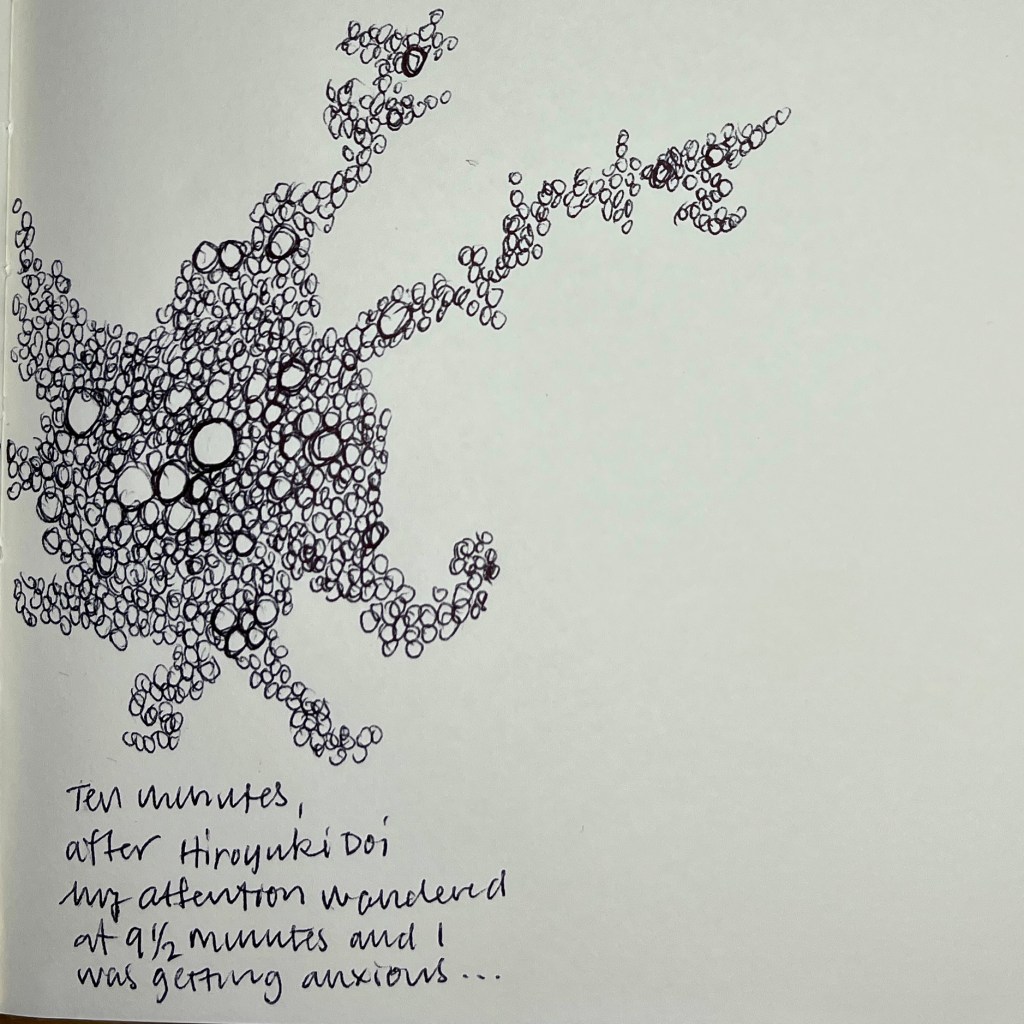 Ten minutes,
after Hiroyuki Doi
my attention wandered
at 9½ minutes and I
was getting anxious...